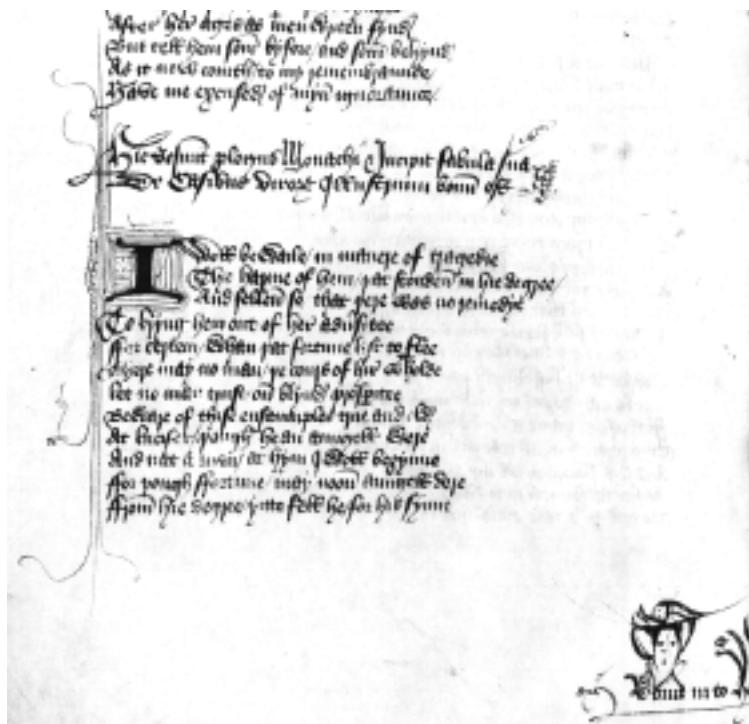 After her ages as men wryten fynde
But tell hem som byfore and som behynde
As it now comth to my remembraunce
Have me excused of myn ignoraunce
Hic desinit prologus Monachi & Incipit fabula sua
De Casibus virorum Illustrium
I Woll bewaile in manere of tragedie
The harme of hem þat stonden in hie degree
And fellen so that þere was no remedye
To bryng hem out of her adversitee
ffor certein whan þat fortune list to flee
There may no man þe cours of hir holde
let no man trust on blynd prosperitee
Beware of thise ensamples true and
At lucifer þough he an aungell were
And nat a man at hym I woll begynne
ffor þough ffortune may noon aungell dere
ffrom hie degre yitte fell he for his synne
Doun in to